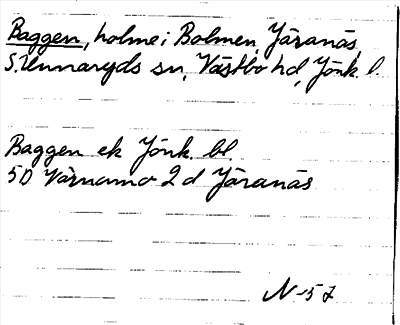 Baggen, holme i Bolmen, Järanäs,
S. Unnaryds sn, Västbo hd, Jönk. l.
Baggen ek Jönk. bl.
5D Värnamo 2d Järanäs
N-57